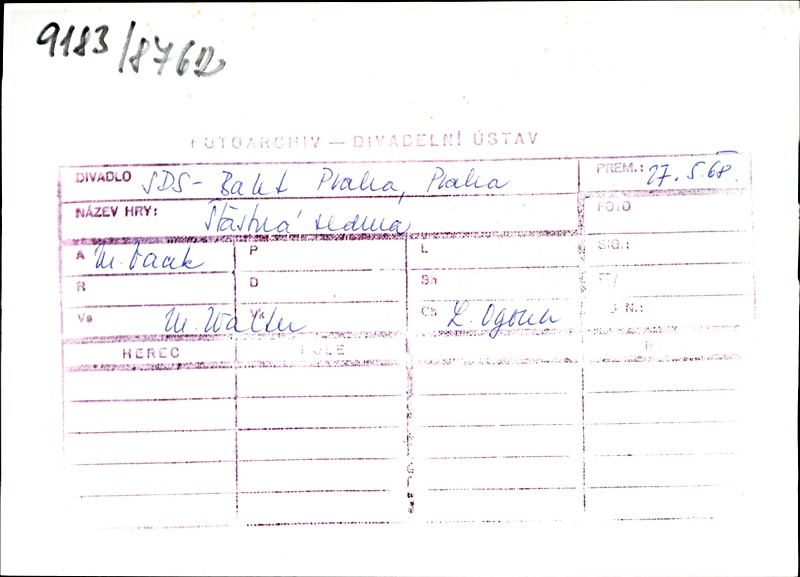 9183/8762
FOTOARCHIV — DIVADELNÍ ÚSTAV
DIVADLO SDS - Balet Praha, Praha PREM.: 27. 5. 68.
NÁZEV HRY: Šťastná sedma FOTO
A M. Vacek P L SIG.:
R D Sn
Vs M. Walter Vk Ch L. Ogoun J N.:
HEREC ROLE